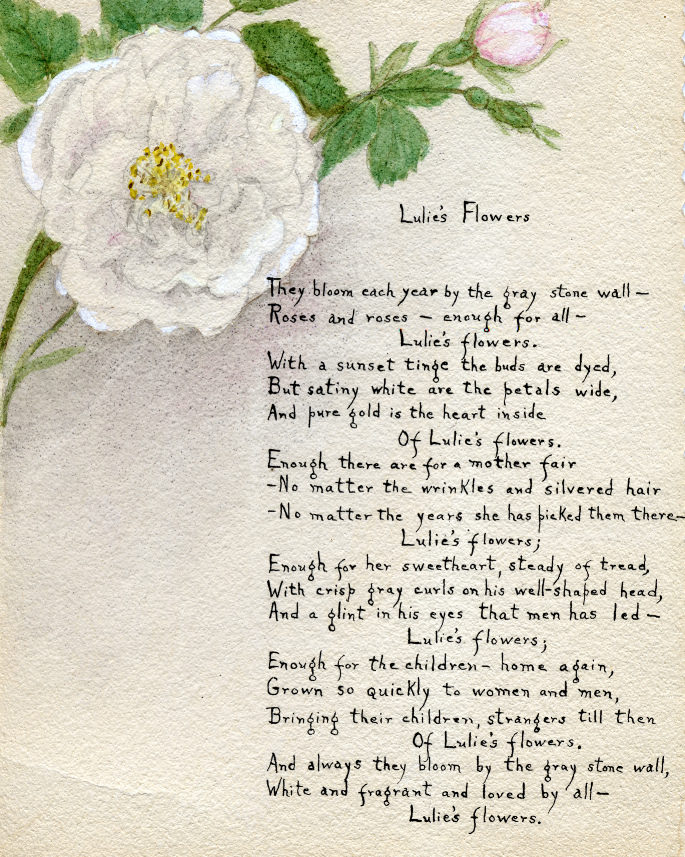 Lulie's Flowers
They bloom each year by the gray stone wall —
Roses and roses — enough for all —
Lulie's flowers.
With a sunset tinge the buds are dyed,
But satiny white are the petals wide,
And pure gold is the heart inside
Of Lulie's flowers.
Enough there are for a mother fair
-No matter the wrinkles and silvered hair
-No matter the years she has picked them there—
Lulie's flowers;
Enough for her sweetheart, steady of tread,
With crisp gray curls on his well-shaped head,
And a glint in his eyes that men has led —
Lulie's flowers;
Enough for the children — home again,
Grown so quickly to women and men,
Bringing their children, strangers till then
Of Lulie's flowers.
And always they bloom by the gray stone wall,
White and fragrant and loved by all—
Lulie's flowers.